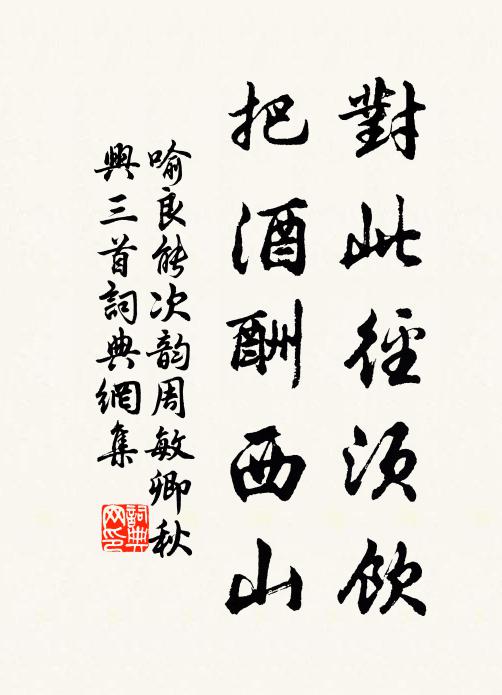 對此徑須飲
把酒酬西山
喻良能次韵周敏卿秋
興三首詞典網集
詞典
网印